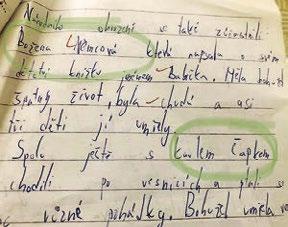 Národního obrození se také zúčastnila
Božena Němcová která napsala o svém
dětství knížku jménem Babička. Měla
špatný život, byla chudá a asi
tři děti jí umřely.
Spolu ještě s Karlem Čapkem
chodili po vesnicích a psali
různé pohádky. Bohužel umřela